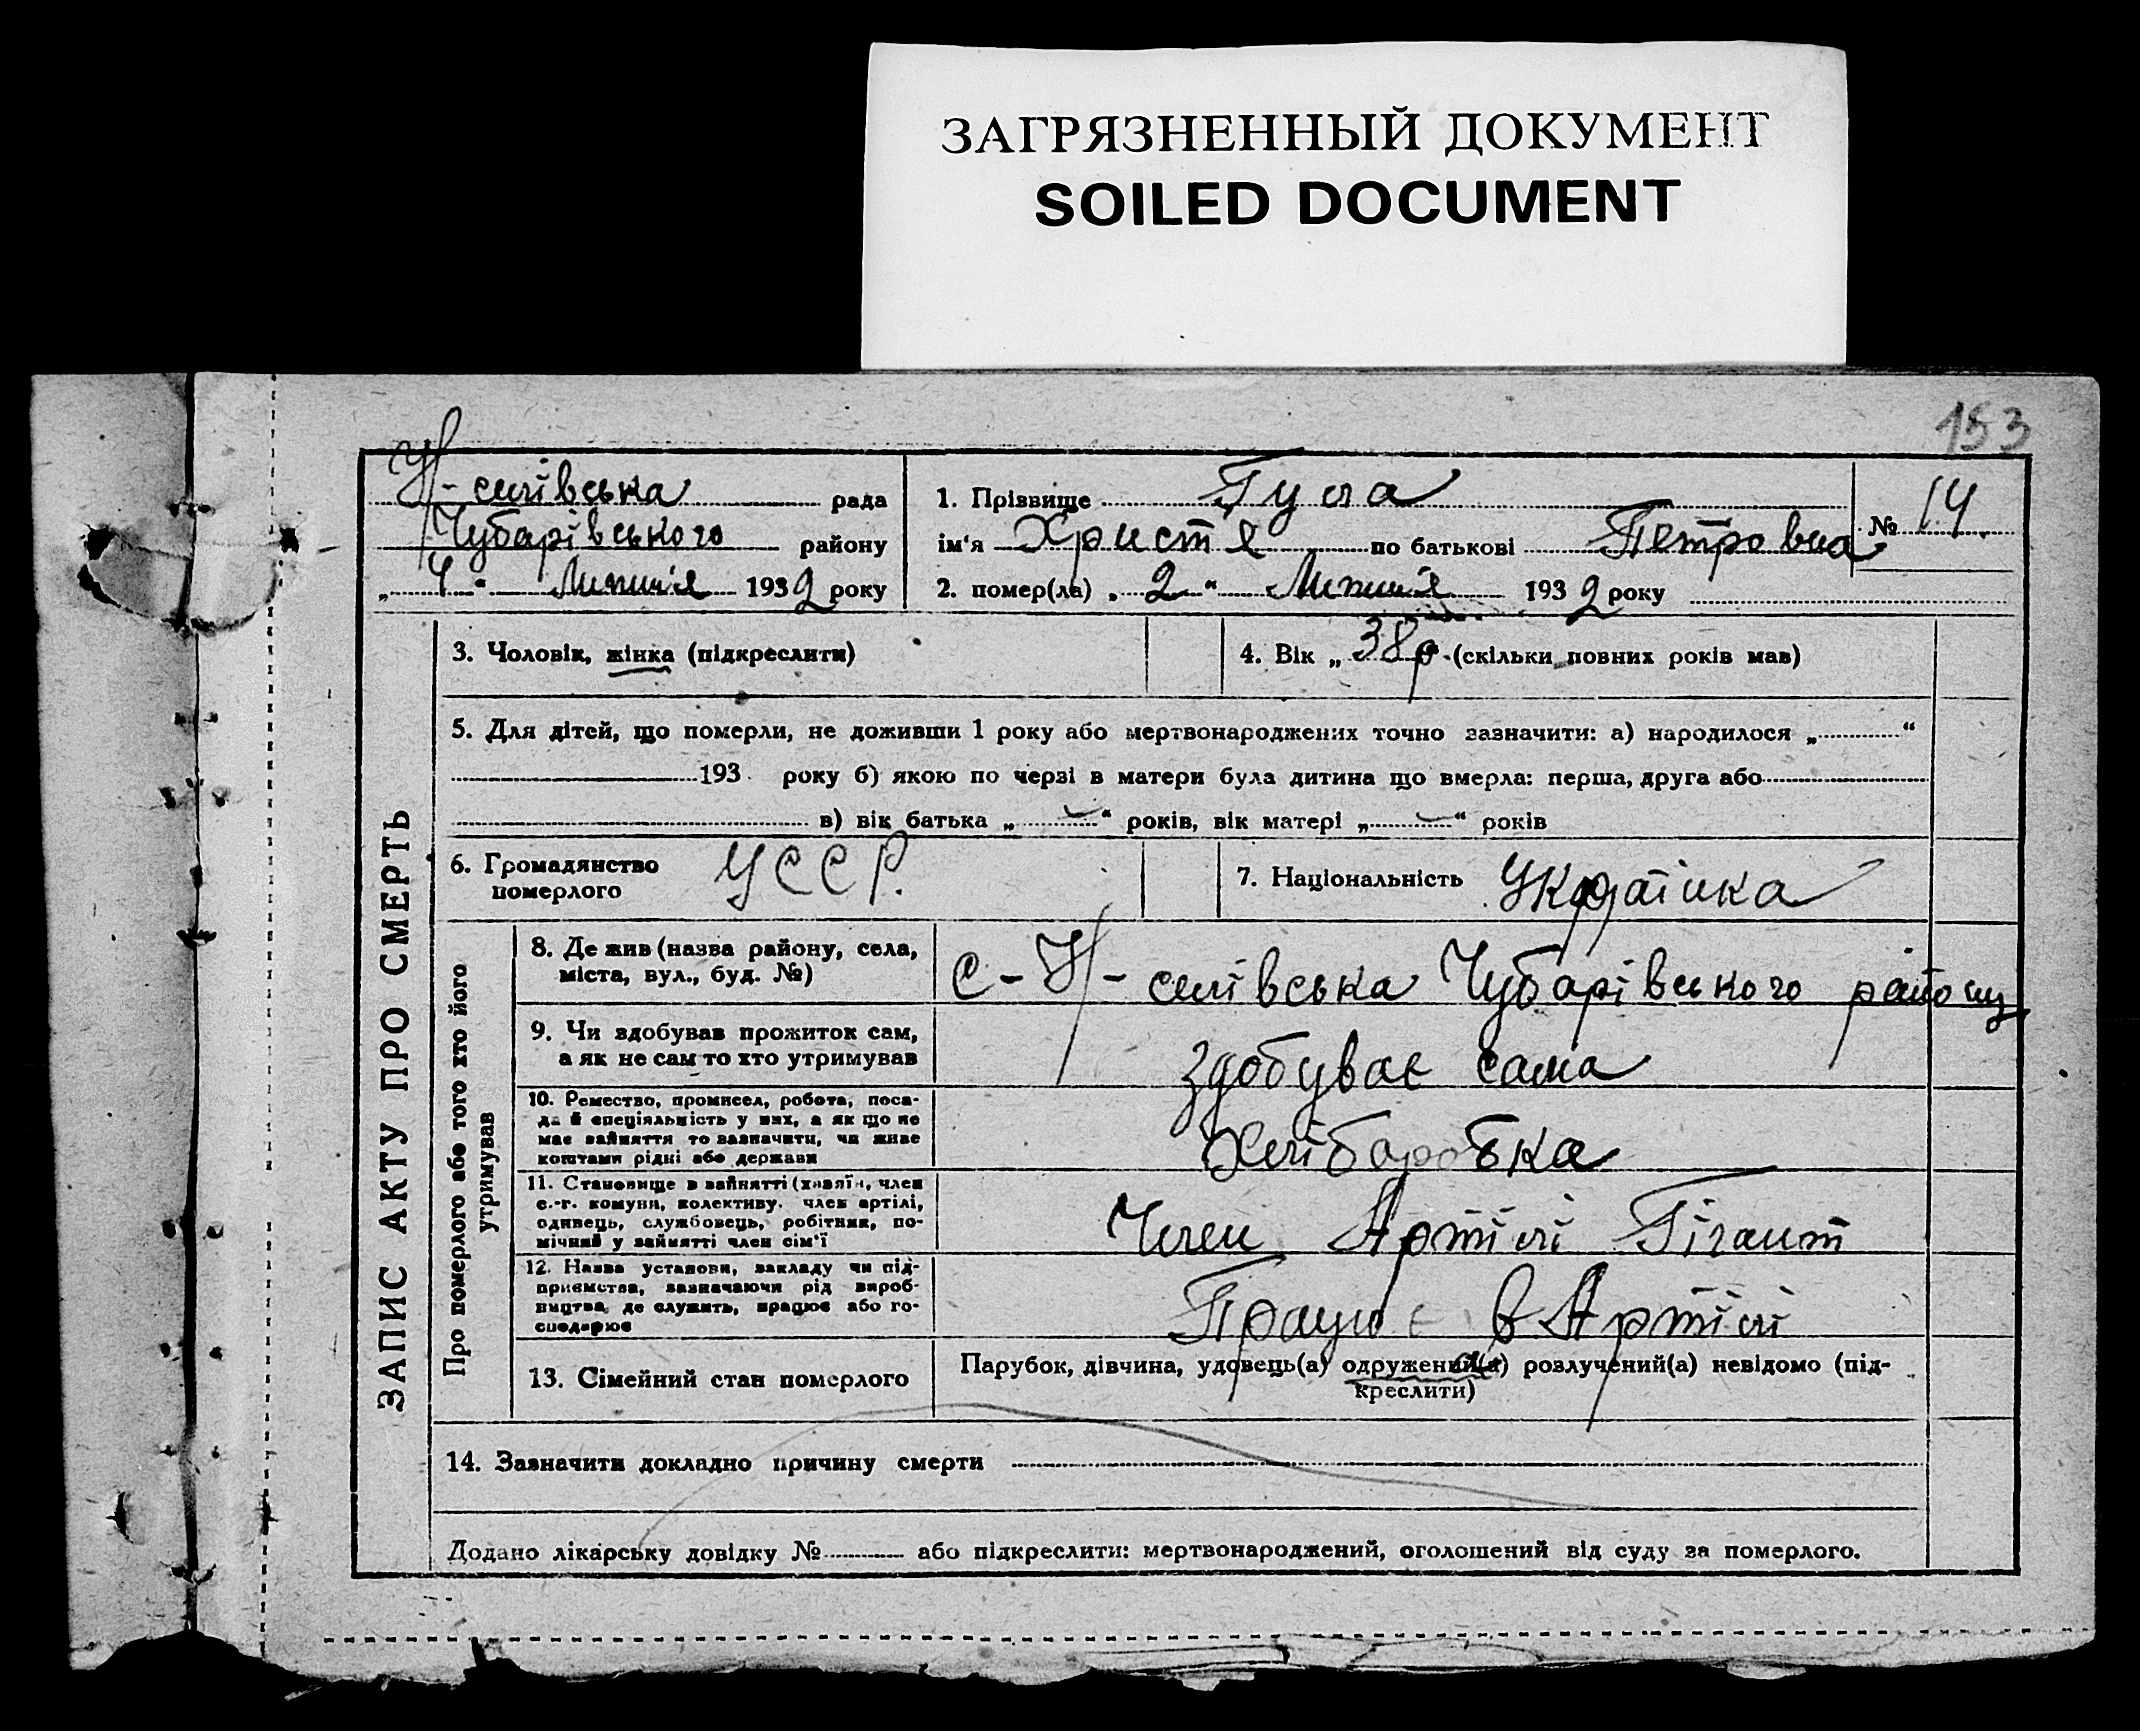 ЗАГРЯЗНЕННЫЙ ДОКУМЕНТ
SOILED DOCUMENT
153
селівська рада
Чубарівського району
„ 4 “ Липня 1932 року
1. Прізвище Гула
ім'я Христя по батькові Петровна
№ 14
2. помер(ла) „ 2 “ Липня 1932 року
ЗАПИС АКТУ ПРО СМЕРТЬ
3. Чоловік, жінка (підкреслити)
4. Вік „ 38 р “ (скільки повних років мав)
5. Для дітей, що померли, не доживши 1 року або мертвонароджених точно зазначити: а) народилося „ “
193 року б) якою по черзі в матери була дитина що вмерла: перша, друга або
в) вік батька „ “ років, вік матері „ “ років
6. Громадянство померлого УССР.
7. Національність Українка
Про померлого або того хто його утримував
8. Де жив (назва району, села,
міста, вул., буд. №)
с - селівська Чубарівського району
9. Чи здобував прожиток сам,
а як не сам то хто утримував
Здобуває сама
10. Ремество, промисел, робота, поса-
да й спеціяльність у них, а як що не
має вайняття то вазначити, чи живе
коштами рідні або держави
Хліборобка
11. Становище в вайнятті (хазяїн, член
с.-г. комуни, колективу, член артілі,
одинець, службовець, робітник, по-
мічний у вайнятті член сім'ї
Член Артілі Гігант
12. Назва установи, закладу чи під-
приємства, зазначаючи рід вироб-
ництва, де служить, працює або го-
сподарює
Працює в Артілі
13. Сімейний стан померлого
Парубок, дівчина, удовець(а) одружений(а) розлучений(а) невідомо (під-
креслити)
14. Зазначити докладно причину смерти
Додано лікарську довідку № або підкреслити: мертвонароджений, оголошений від суду за померлого.